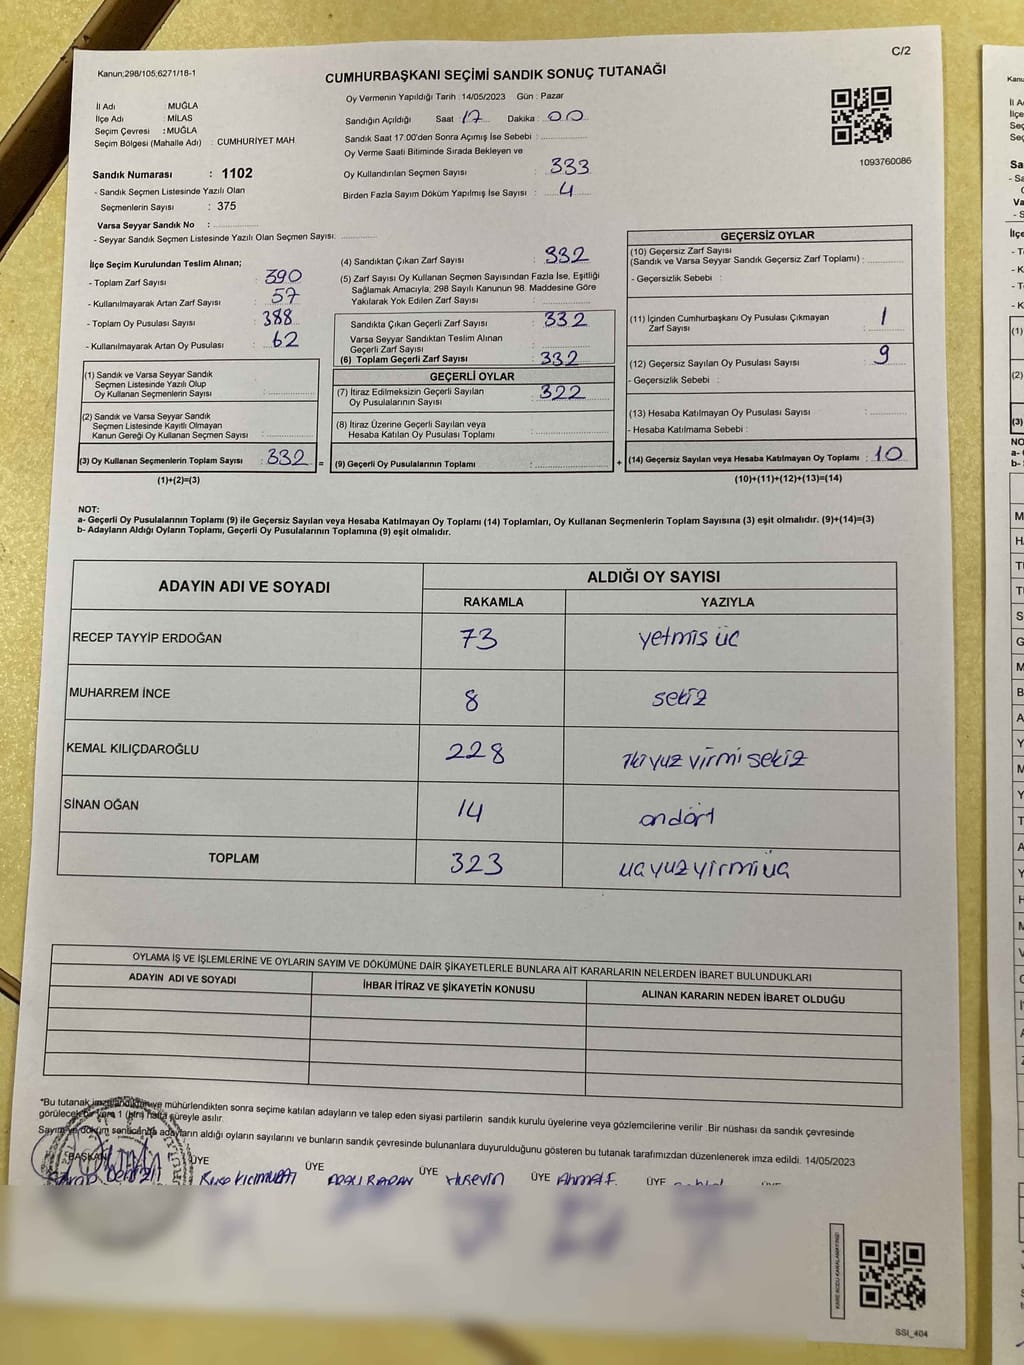 C/2
Kanun;298/105;6271/18-1
CUMHURBAŞKANI SEÇİMİ SANDIK SONUÇ TUTANAĞI
İl Adı : MUĞLA
İlçe Adı : MİLAS
Seçim Çevresi : MUĞLA
Seçim Bölgesi (Mahalle Adı) : CUMHURİYET MAH
Sandık Numarası : 1102
- Sandık Seçmen Listesinde Yazılı Olan
Seçmenlerin Sayısı : 375
Varsa Seyyar Sandık No :
- Seyyar Sandık Seçmen Listesinde Yazılı Olan Seçmen Sayısı:
Oy Vermenin Yapıldığı Tarih : 14/05/2023 Gün : Pazar
Sandığın Açıldığı Saat : 17 Dakika : 00
Sandık Saat 17:00'den Sonra Açımış İse Sebebi :
Oy Verme Saati Bitiminde Sırada Bekleyen ve
Oy Kullandırılan Seçmen Sayısı : 333
Birden Fazla Sayım Döküm Yapılmış İse Sayısı : 4
1093760086
İlçe Seçim Kurulundan Teslim Alınan;
- Toplam Zarf Sayısı : 390
- Kullanılmayarak Artan Zarf Sayısı : 57
- Toplam Oy Pusulası Sayısı : 388
- Kullanılmayarak Artan Oy Pusulası : 62
(1) Sandık ve Varsa Seyyar Sandık
Seçmen Listesinde Yazılı Olup
Oy Kullanan Seçmenlerin Sayısı :
(2) Sandık ve Varsa Seyyar Sandık
Seçmen Listesinde Kayıtlı Olmayan
Kanun Gereği Oy Kullanan Seçmen Sayısı :
(3) Oy Kullanan Seçmenlerin Toplam Sayısı : 332
(1)+(2)=(3)
(4) Sandıktan Çıkan Zarf Sayısı : 332
(5) Zarf Sayısı Oy Kullanan Seçmen Sayısından Fazla İse, Eşitliği
Sağlamak Amacıyla; 298 Sayılı Kanunun 98. Maddesine Göre
Yakılarak Yok Edilen Zarf Sayısı :
Sandıkta Çıkan Geçerli Zarf Sayısı : 332
Varsa Seyyar Sandıktan Teslim Alınan
Geçerli Zarf Sayısı :
(6) Toplam Geçerli Zarf Sayısı : 332
GEÇERLİ OYLAR
(7) İtiraz Edilmeksizin Geçerli Sayılan
Oy Pusulalarının Sayısı : 322
(8) İtiraz Üzerine Geçerli Sayılan veya
Hesaba Katılan Oy Pusulası Toplamı :
= (9) Geçerli Oy Pusulalarının Toplamı :
GEÇERSİZ OYLAR
(10) Geçersiz Zarf Sayısı
(Sandık ve Varsa Seyyar Sandık Geçersiz Zarf Toplamı) :
- Geçersizlik Sebebi :
(11) İçinden Cumhurbaşkanı Oy Pusulası Çıkmayan
Zarf Sayısı : 1
(12) Geçersiz Sayılan Oy Pusulası Sayısı : 9
- Geçersizlik Sebebi :
(13) Hesaba Katılmayan Oy Pusulası Sayısı :
- Hesaba Katılmama Sebebi :
+ (14) Geçersiz Sayılan veya Hesaba Katılmayan Oy Toplamı : 10
(10)+(11)+(12)+(13)=(14)
NOT:
a- Geçerli Oy Pusulalarının Toplamı (9) ile Geçersiz Sayılan veya Hesaba Katılmayan Oy Toplamı (14) Toplamları, Oy Kullanan Seçmenlerin Toplam Sayısına (3) eşit olmalıdır. (9)+(14)=(3)
b- Adayların Aldığı Oyların Toplamı, Geçerli Oy Pusulalarının Toplamına (9) eşit olmalıdır.
ADAYIN ADI VE SOYADI ALDIĞI OY SAYISI
RAKAMLA YAZIYLA
RECEP TAYYİP ERDOĞAN 73 yetmis üc
MUHARREM İNCE 8 sekiz
KEMAL KILIÇDAROĞLU 228 ikiyuz yirmi sekiz
SİNAN OĞAN 14 ondört
TOPLAM 323 üçyuzyirmiüç
OYLAMA İŞ VE İŞLEMLERİNE VE OYLARIN SAYIM VE DÖKÜMÜNE DAİR ŞİKAYETLERLE BUNLARA AİT KARARLARIN NELERDEN İBARET BULUNDUKLARI
ADAYIN ADI VE SOYADI İHBAR İTİRAZ VE ŞİKAYETİN KONUSU ALINAN KARARIN NEDEN İBARET OLDUĞU
*Bu tutanak imzalandıktan ve mühürlendikten sonra seçime katılan adayların ve talep eden siyasi partilerin sandık kurulu üyelerine veya gözlemcilerine verilir .Bir nüshası da sandık çevresinde
görülecek bir yere 1 (bir) hafta süreyle asılır.
Sayım ve döküm sonucunda adayların aldığı oyların sayılarını ve bunların sandık çevresinde bulunanlara duyurulduğunu gösteren bu tutanak tarafımızdan düzenlenerek imza edildi. 14/05/2023
BAŞKAN ÜYE ÜYE ÜYE ÜYE ÜYE
Hüseyin Ahmet F.
SSI_404